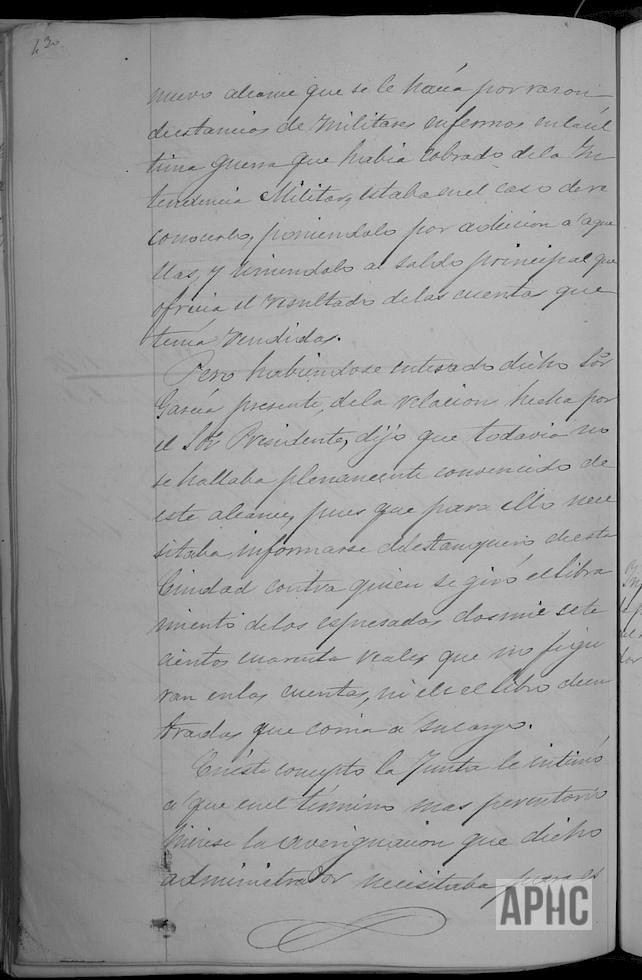 430
nuevo alcance que se le hacía por razon
de estancias de Militares enfermos en la úl
tima guerra que habia cobrado de la In
tendencia Militar, estaba en el caso de re
conocerlo, poniendolo por adicion a aque
llas, y uniendolo al saldo principal que
ofrecia el resultado de las cuentas que
tenia rendidas.
Pero habiendose enterado dicho Sõr
García presente, de la relacion hecha por
el Sõr Presidente, dijo que todavia no
se hallaba plenamente convencido de
este alcance, pues que para ello nece
sitaba informarse del estanquero de esta
Ciudad contra quien se giró el libra
miento de los espresados dos mil sete
cientos cuarenta reales que no figu
ran en las cuentas, ni en el libro de en
tradas que corria a su cargo.
En este concepto la Junta le intimó
a que en el término mas perentorio
hiciese la averiguacion que dicho
administrador necesitaba para es
APHC